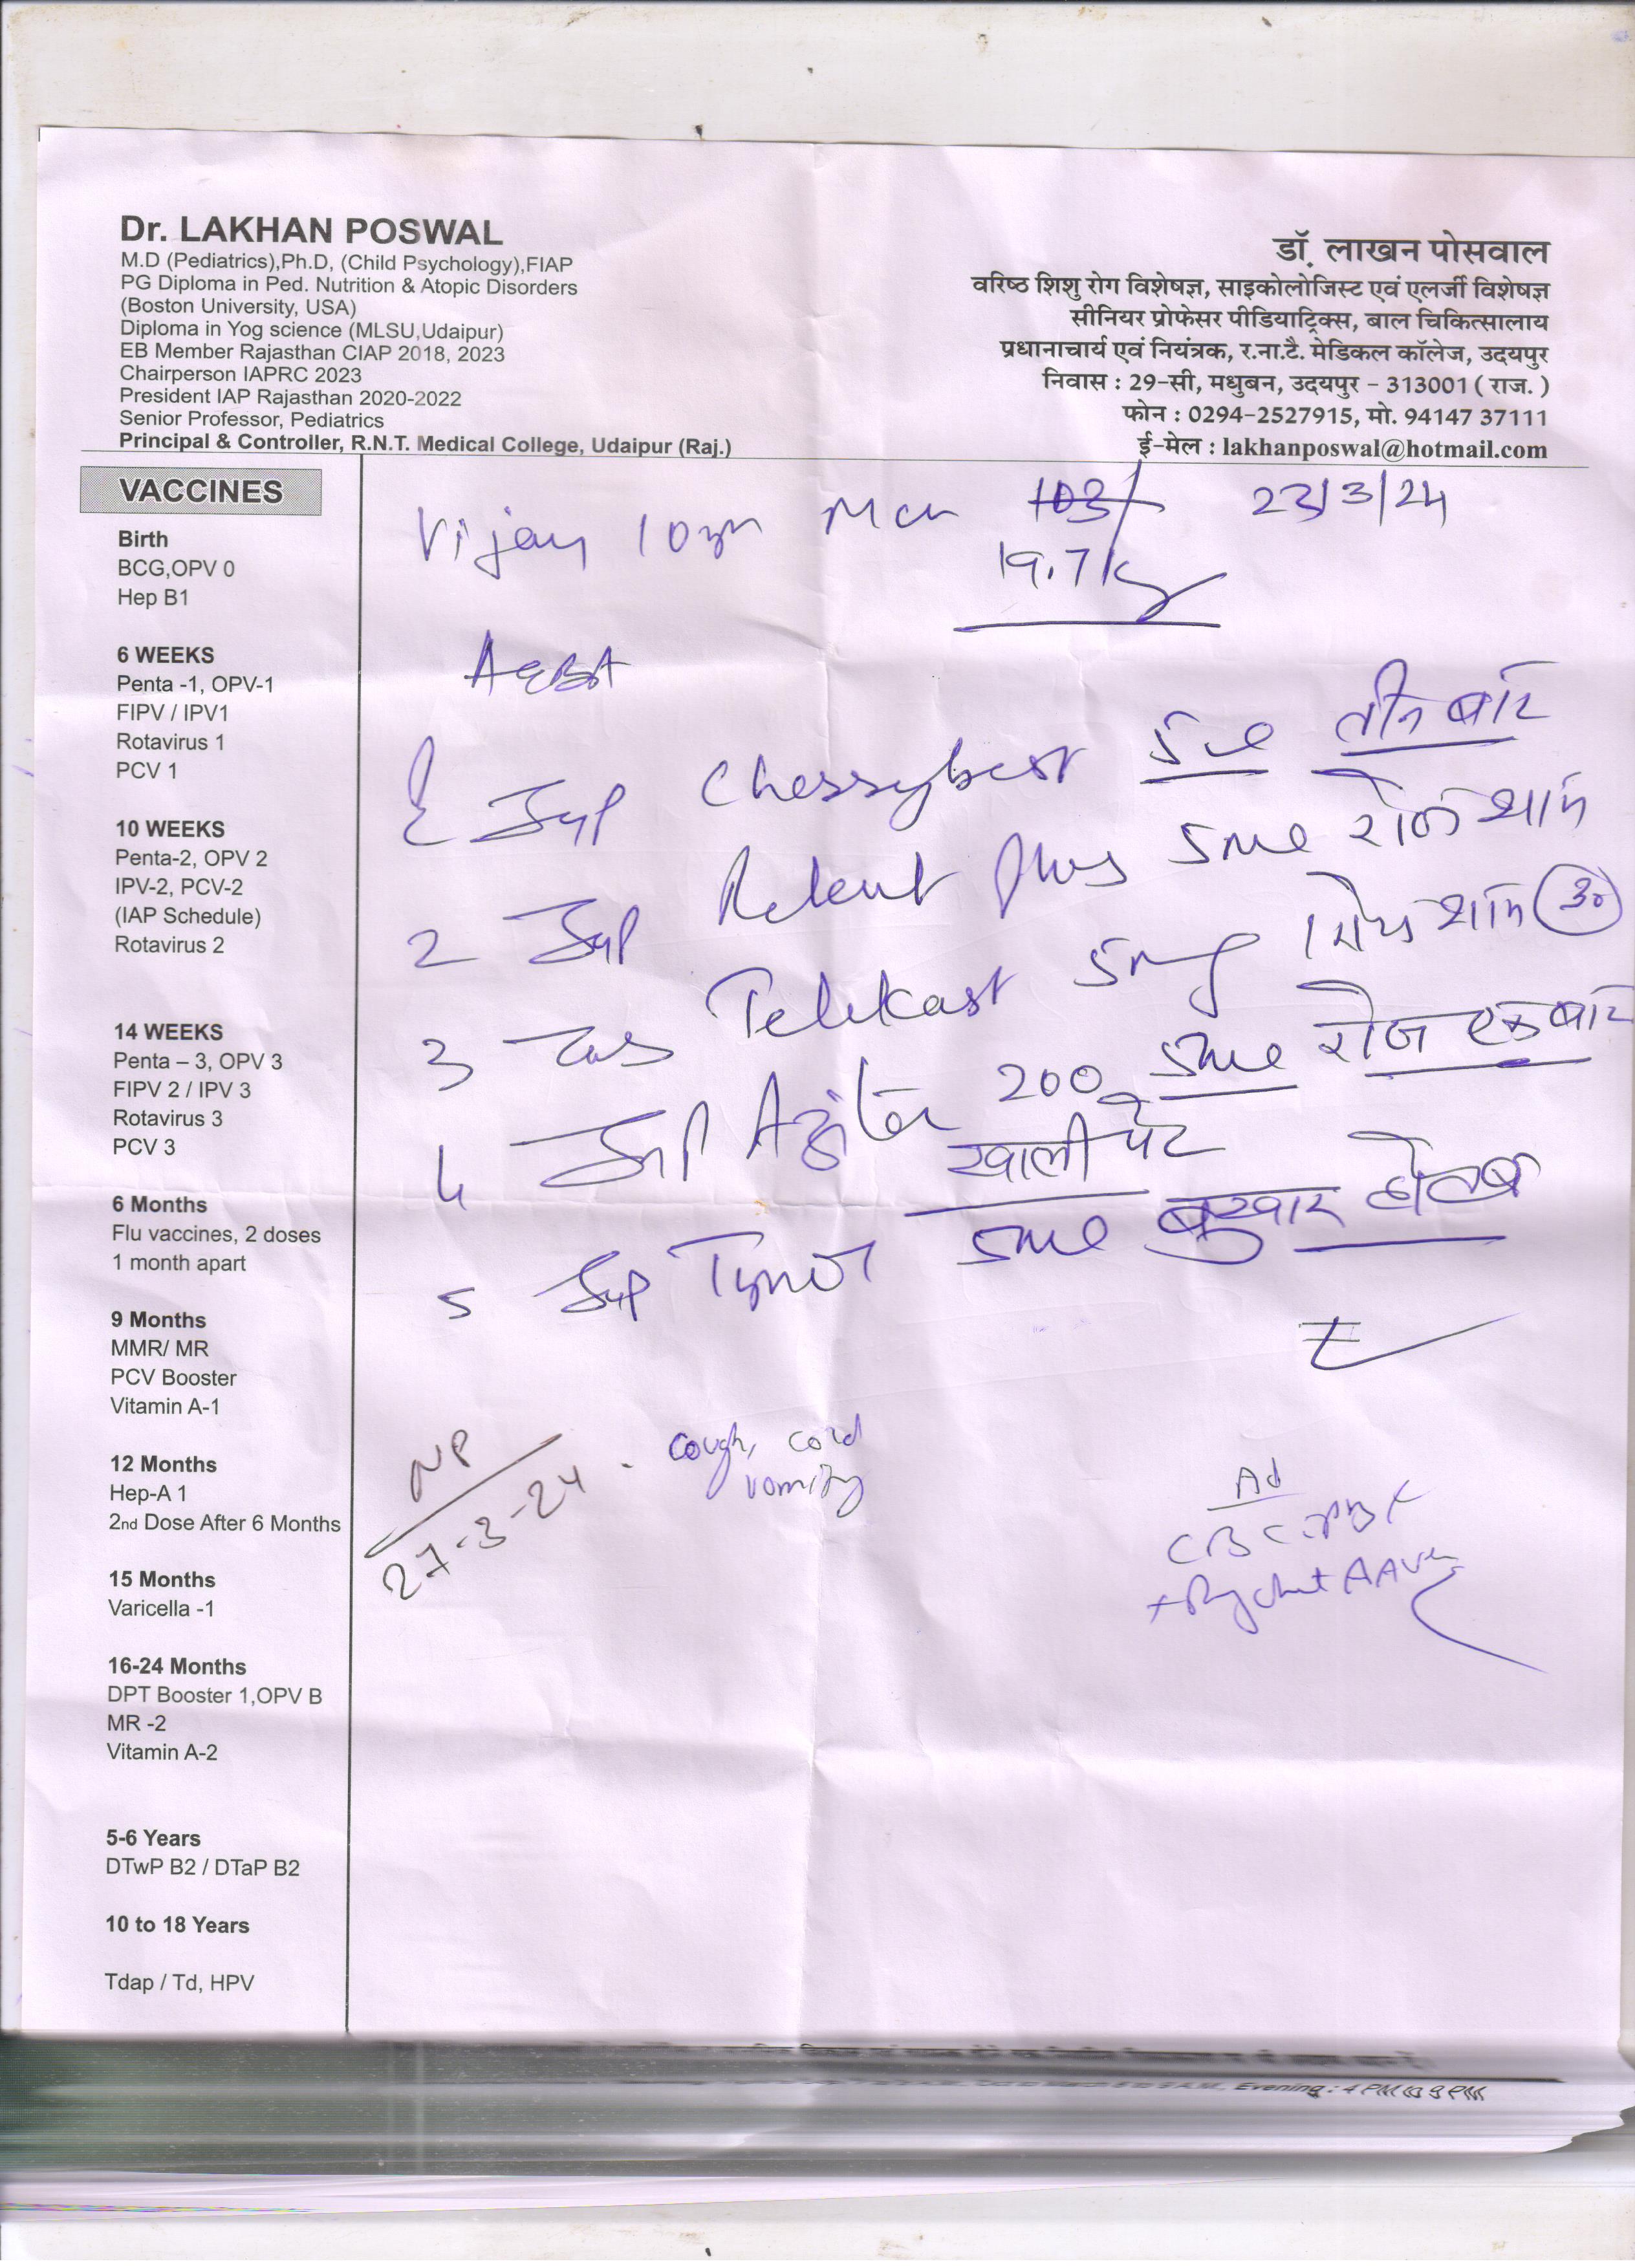 Dr. LAKHAN POSWAL
M.D (Pediatrics),Ph.D, (Child Psychology),FIAP
PG Diploma in Ped. Nutrition & Atopic Disorders
(Boston University, USA)
Diploma in Yog science (MLSU,Udaipur)
EB Member Rajasthan CIAP 2018, 2023
Chairperson IAPRC 2023
President IAP Rajasthan 2020-2022
Senior Professor, Pediatrics
Principal & Controller, R.N.T. Medical College, Udaipur (Raj.)
डॉ. लाखन पोसवाल
वरिष्ठ शिशु रोग विशेषज्ञ, साइकोलोजिस्ट एवं एलर्जी विशेषज्ञ
सीनियर प्रोफेसर पीडियाट्रिक्स, बाल चिकित्सालाय
प्रधानाचार्य एवं नियंत्रक, र.ना.टै. मेडिकल कॉलेज, उदयपुर
निवास : 29-सी, मधुबन, उदयपुर - 313001 ( राज. )
फोन : 0294-2527915, मो. 94147 37111
ई-मेल : lakhanposwal@hotmail.com
VACCINES
Birth
BCG,OPV 0
Hep B1
6 WEEKS
Penta -1, OPV-1
FIPV / IPV1
Rotavirus 1
PCV 1
10 WEEKS
Penta-2, OPV 2
IPV-2, PCV-2
(IAP Schedule)
Rotavirus 2
14 WEEKS
Penta – 3, OPV 3
FIPV 2 / IPV 3
Rotavirus 3
PCV 3
6 Months
Flu vaccines, 2 doses
1 month apart
9 Months
MMR/ MR
PCV Booster
Vitamin A-1
12 Months
Hep-A 1
2nd Dose After 6 Months
15 Months
Varicella -1
16-24 Months
DPT Booster 1,OPV B
MR -2
Vitamin A-2
5-6 Years
DTwP B2 / DTaP B2
10 to 18 Years
Tdap / Td, HPV
Vijay 10yr 103 23/3/24
19.7 Kg
Syp Cherrybest 5ml तीन बार
2 Syp Relent Plus 5ml रोज शाम
3 Tab Telekast 5mg रोज शाम 30
4 Syp 200 5ml रोज एक बार
खाली पेट
5 Syp 5ml बुखार हो तब
NP
27-3-24
cough, cold
vomiting
Ad
CBC
Evening : 4 PM to 9 PM